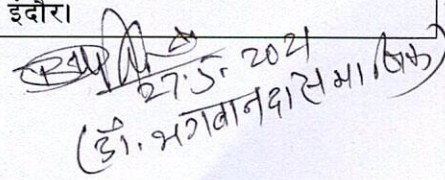 इंदौर।
27.5.2021
(डॉ. भगवानदास मानिक)